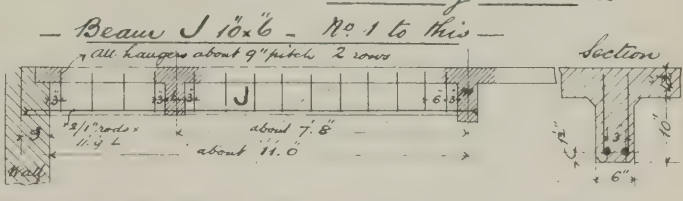 — Beam J 10"x6" — No. 1 to this —
all hangers about 9" pitch 2 rows
Section
3"
3"
3"
J
6"
3"
9"
2/1" rods x
11.9 L
about 7'.8"
about 11'.0"
Wall
3
10"
1½"
6"